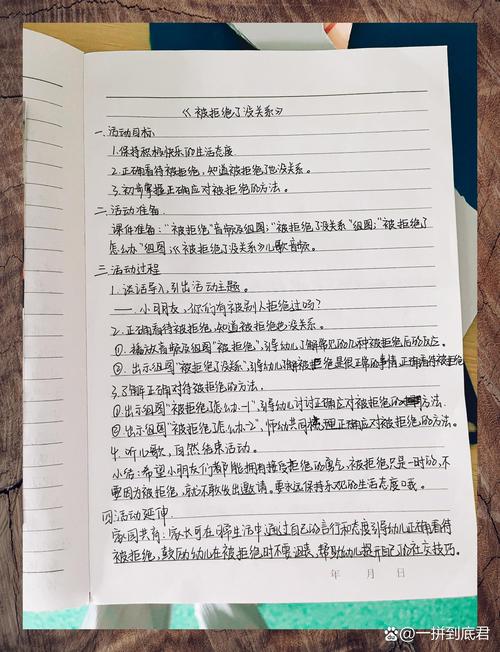 《被拒绝了没关系》
一.活动目标:
1.保持积极快乐的生活态度
2.正确看待被拒绝,知道被拒绝了也没关系。
3.初步掌握正确应对被拒绝的方法。
二.活动准备.
课件准备:"被拒绝"音频及组图;"被拒绝了没关系"组图;"被拒绝了
怎么办"组图;《被拒绝了没关系》儿歌音频。
三.活动过程
1.谈话导入,引出活动主题。
——小朋友,你们有被别人拒绝过吗?
2.正确看待被拒绝,知道被拒绝也没关系。
①.播放音频及组图"被拒绝",引导幼儿了解常见的几种被拒绝后的反应。
②.出示组图"被拒绝了没关系",引导幼儿了解被拒绝是很正常的事情,正确看待被拒绝
3.了解正确对待被拒绝的方法。
①出示组图"被拒绝了怎么办-1",引导幼儿讨论正确应对被拒绝的方法.
②出示组图"被拒绝了怎么办-2",师幼共同梳理正确应对被拒绝的方法。
4.听儿歌,自然结束活动。
小结:希望小朋友们都能拥有接受拒绝的勇气,被拒绝只是一时的,不
要因为被拒绝,就不敢发出邀请。要永远保持乐观的生活态度哦。
四活动延伸
家园共育:家长可在日常生活中通过自己的言行和态度引导幼儿正确看待
被拒绝,鼓励幼儿在被拒绝时不要退缩,帮助幼儿提升自己的社交技巧。
年 月 日
百家号/一拼到底君